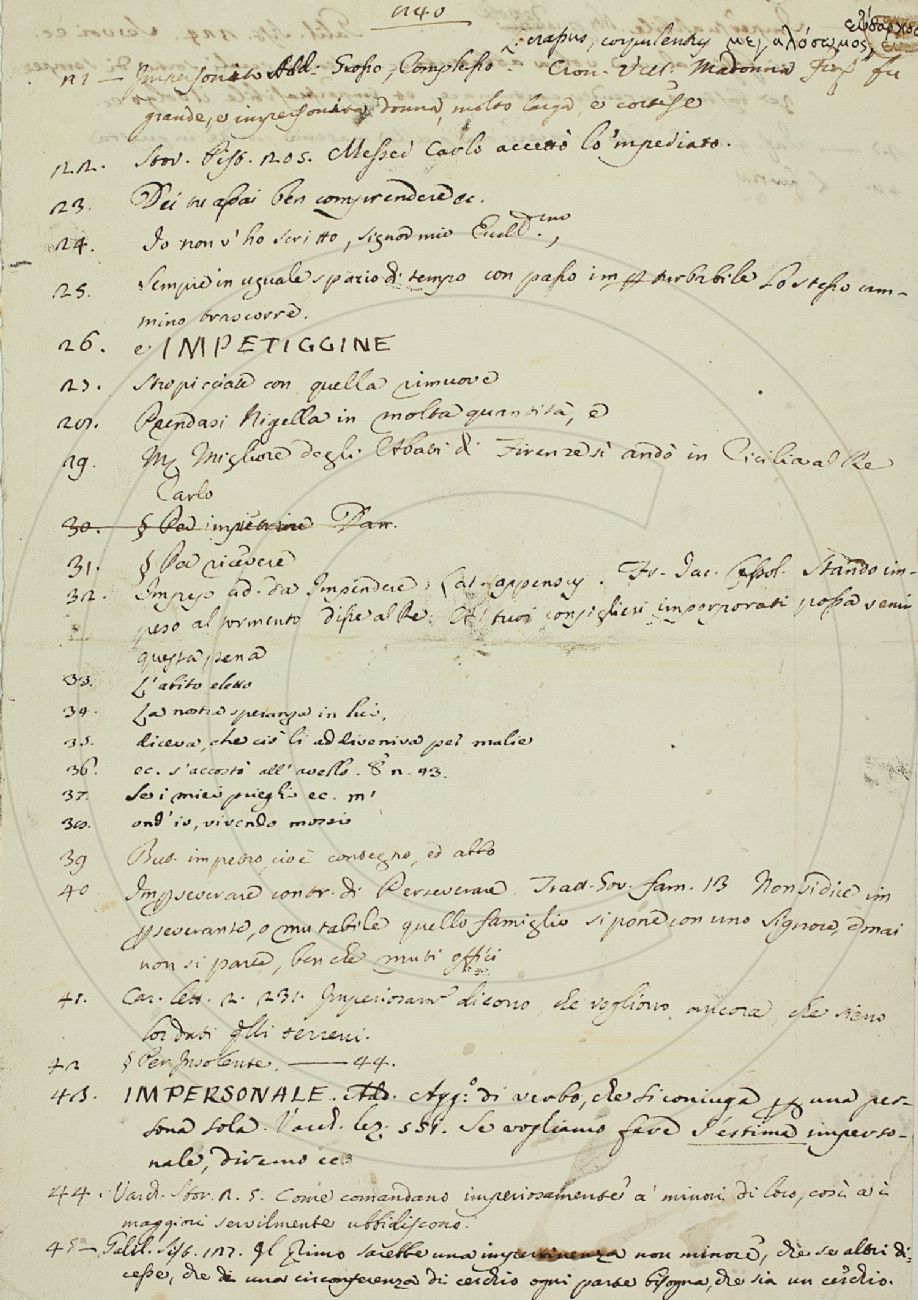 1140
Crassus, corpulentus μεγαλόσωμος, εὔσαρκος
21 — Impersonato Add: Grosso, Complesso - Cron. Vell. Madonna fu
grande, e impersonata donna, molto larga, e cortese
22. Stov. Pist. 205. Messer Carlo accettò lo 'mpediato.
23. Dei tu assai ben comprendere ec.
24. Io non v'ho scritto, signor mio Eccell.mo,
25. Sempre in uguale spazio di tempo con passo imperturbabile lo stesso cam-
mino trascorre.
26. e IMPETIGGINE
27. stropicciate con quella rimuove
28. Prendasi Nigella in molta quantità, e
29. M. Migliore degli Abati di Firenze si andò in Cicilia al Re
Carlo
30. § Per impetrare Dan.
31. § Per ricevere
32. Impeso ad. da Impendere; Lat. appensus. Fr. Jac. Cessol. Stando im-
peso al tormento disse al Re: A' tuoi consiglieri imporporati possa venir
questa pena
33. L'abito eletto
34. La nostra speranza in lui,
35. diceva, che ciò li addiveniva per malie
36. ec. s'accostò all'avello. § n. 43.
37. Se i miei prieghi ec. m'
38. ond'io, vivendo
39 But. impetro, cioè consegno, ed abbo
40. Imperseverare contr. di Perseverare. Tratt. Gov. fam. 13 Non si dice im
perseverante, o mutabile quello famiglio si pone con uno signore, donai
non si parte, ben che muti offici
41. Car. lett. 2. 231. Imperiosam.e dicono, che vogliono, ancora che sieno
lor dati gli terreni.
42 § Per Insolente. —— 44.
43. IMPERSONALE. Add. Agg:o di verbo, che si coniuga per una per-
sona sola. Varch. lez. 551. Se vogliamo fare s'estima imperso-
nale, diremo ec:
44. Varch. Stor. 2. 5. Come comandano imperiosamente a' minori di loro, così a i
maggiori servilmente ubbidiscono.
45 — Galil. Sist. 117. Il primo sarebbe una impertinenza non minore, che se altri di-
cesse, che di una circonferenza di cerchio ogni parte bisogna, che sia un cerchio.